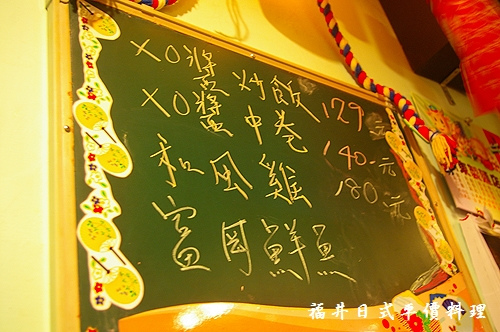 XO醬炒飯 129元
XO醬中卷 140元
和風雞 180元
富岡鮮魚
福井日式平價料理